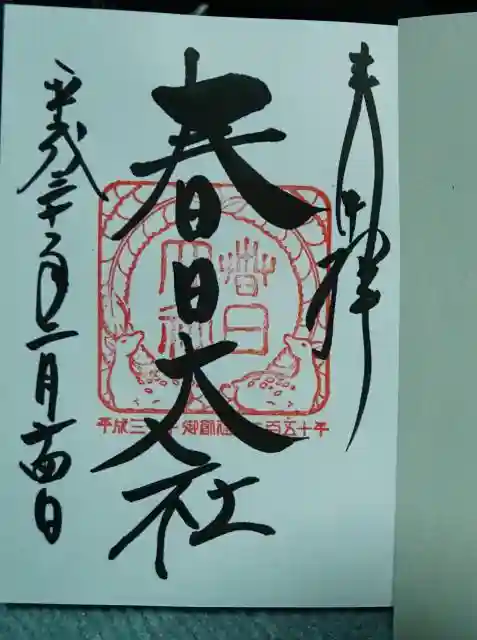 奉拝
春日大社
平成三十年二月十四日
春日
大社
平成三十年御創建 百五十年